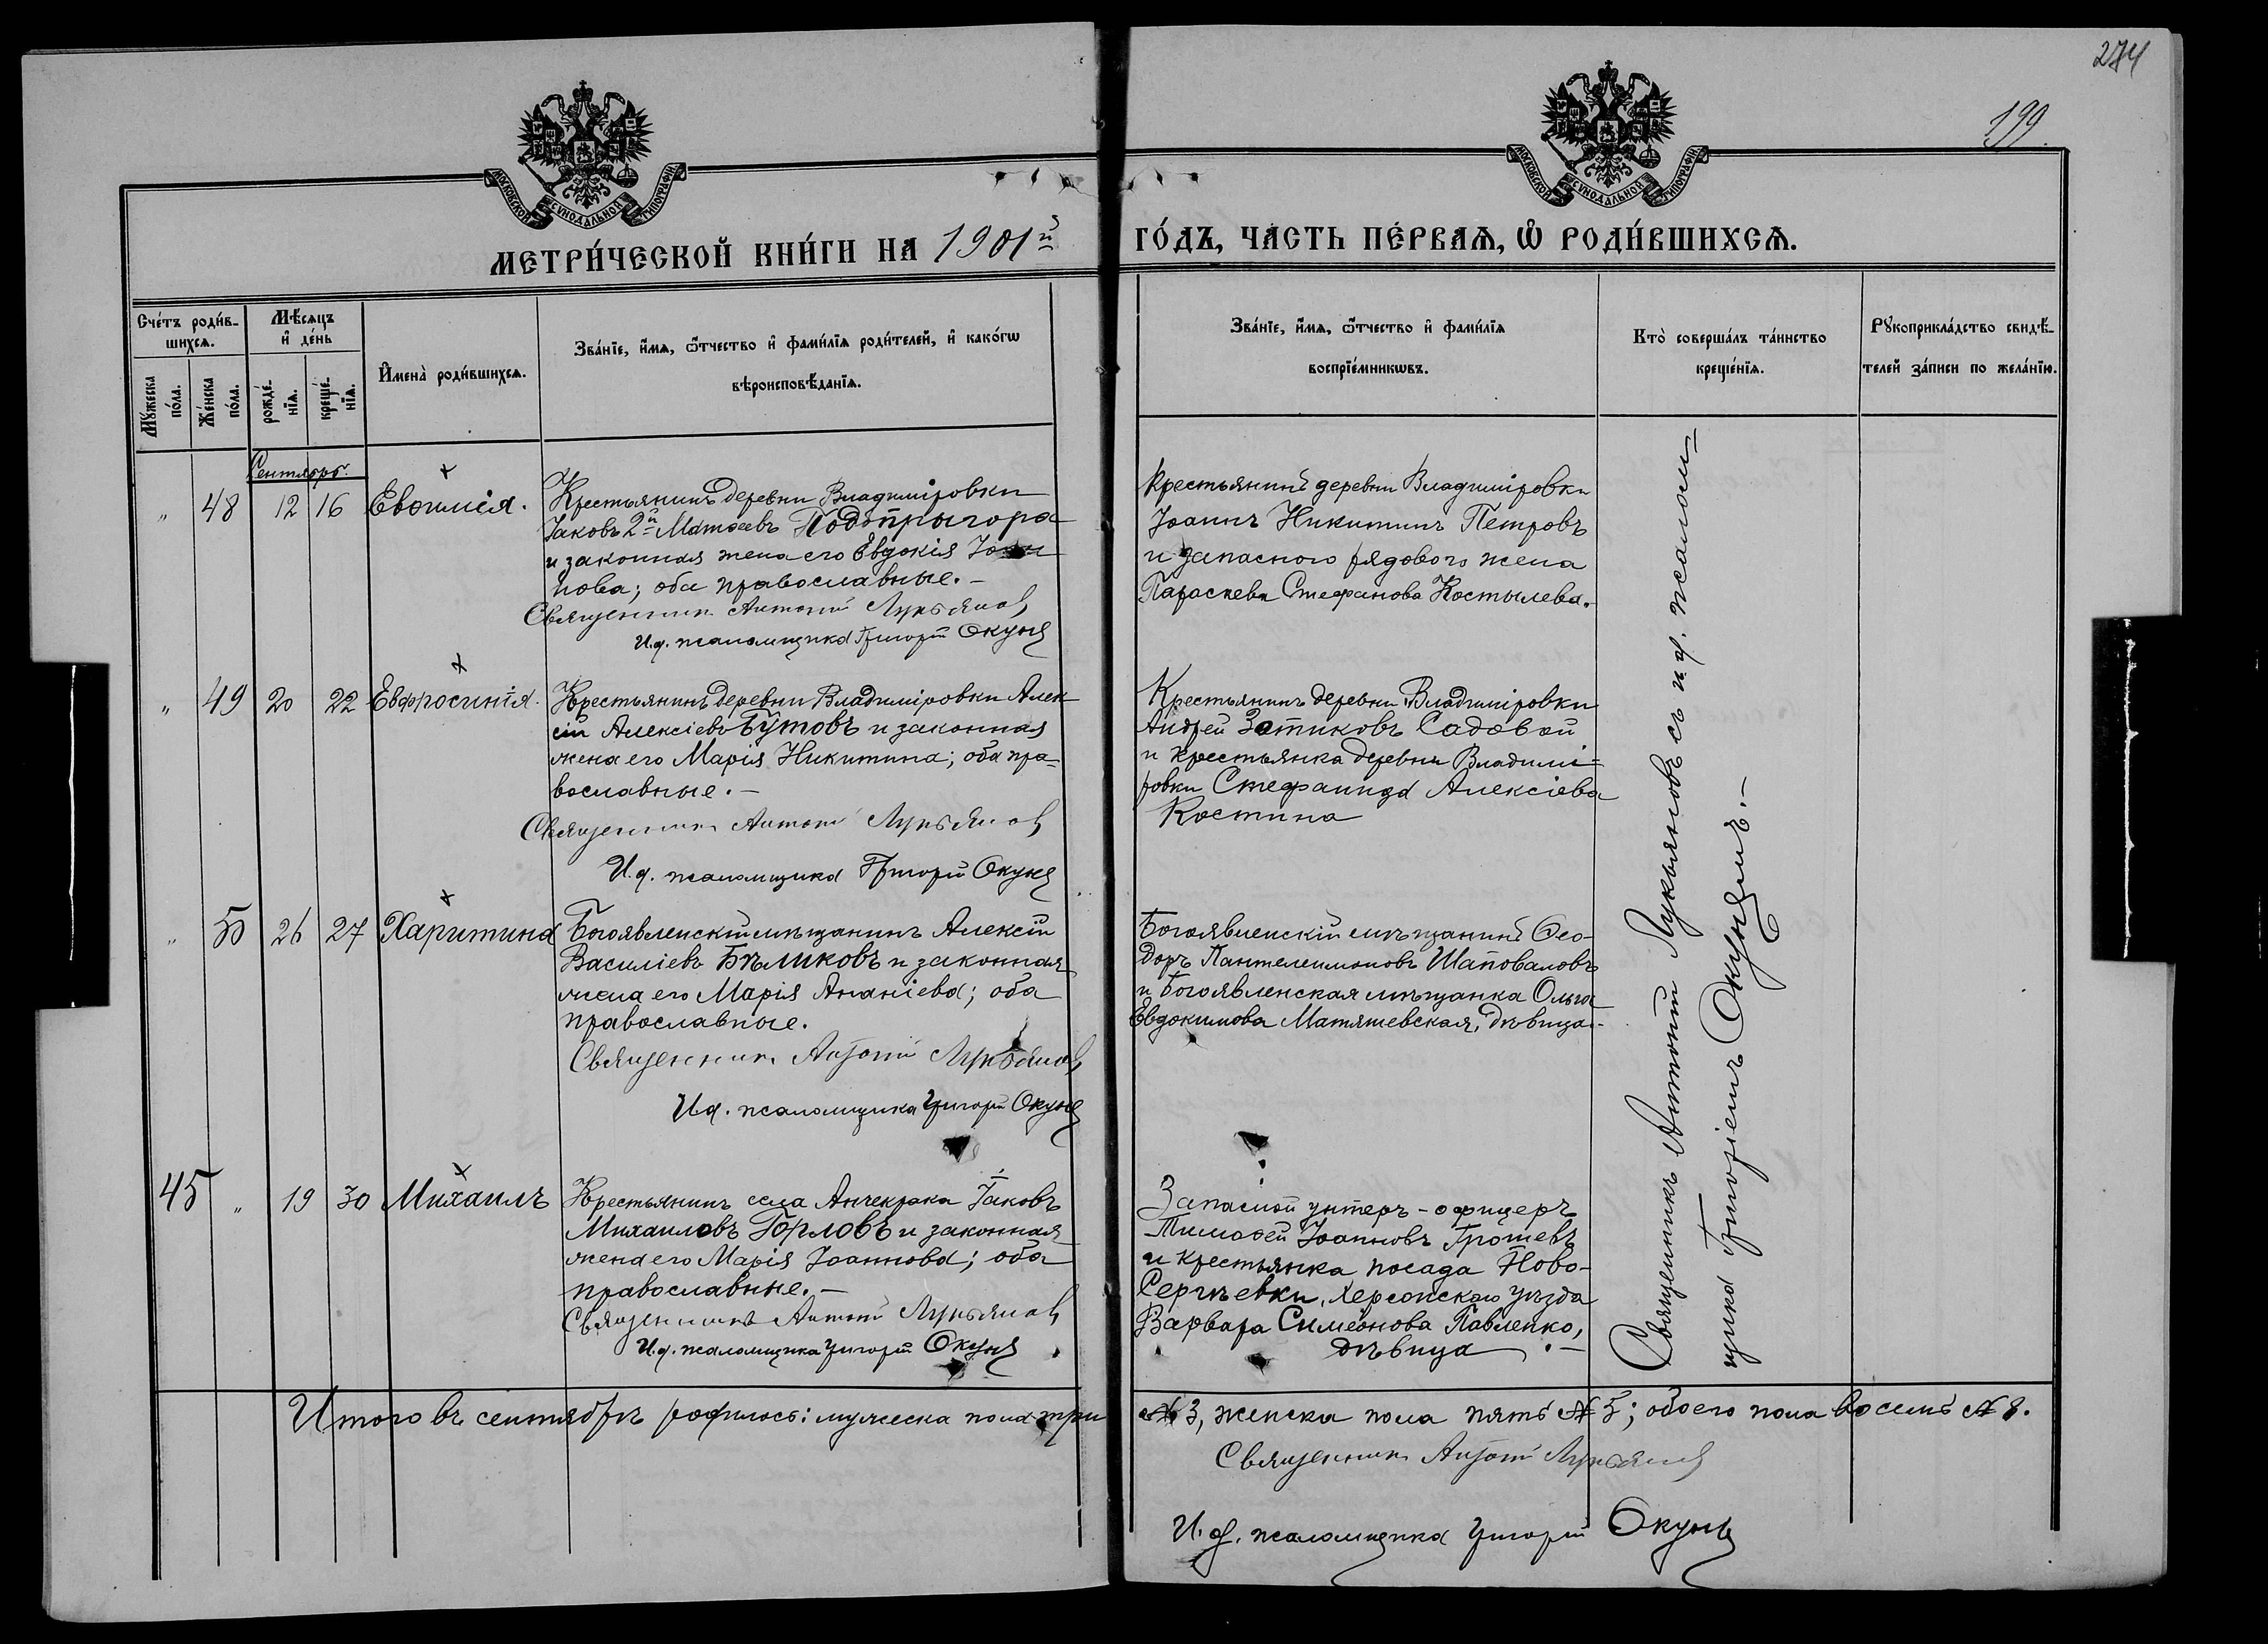 274
199.
МОСКОВСКОЙ СѴНОДАЛЬНОЙ ТИПОГРАФІИ
МОСКОВСКОЙ СѴНОДАЛЬНОЙ ТИПОГРАФІИ
МЕТРИ́ЧЕСКОЙ КНИ́ГИ НА 1901й
ГО́ДЪ, ЧА́СТЬ ПЕ́РВАѦ, Ѽ РОДИ́ВШИХСѦ.
Сче́тъ роди́в-
шихсѧ.
Мꙋ́жеска
по́ла.
Же́нска
по́ла.
Мѣ́сѧцъ
и҆ де́нь
рожде́-
нїѧ.
креще́-
нїѧ.
И҆мена̀ роди́вшихсѧ.
Зва́нїе, и҆́мѧ, ѻ҆́тчество и҆ фами́лїѧ роди́телей, и҆ како́гѡ
вѣроисповѣ́данїѧ.
Зва́нїе, и҆́мѧ, ѻ҆́тчество и҆ фами́лїѧ
воспрїе́мникѡвъ.
Кто̀ соверша́лъ та́инство
креще́нїѧ.
Рꙋкоприкла́дство свидѣ́-
телей за́писи по жела́нїю.
Сентябрь.
„ 48 12 16 Евѳимія.
Крестьянинъ деревни Владиміровки
Іаковъ 2й Матѳеевъ Подопрыгора
и законная жена его Евдокія Іоан
нова; оба православные. –
Священникъ Антоній Лукьяновъ
И.д. псаломщика Григорій Окунь
Крестьянинъ деревни Владиміровки
Іоаннъ Никитинъ Петровъ
и запаснаго рядового жена
Параскева Стефанова Костылева.
„ 49 20 22 Евфросинія.
Крестьянинъ деревни Владиміровки Алек
сій Алексіевъ Бутовъ и законная
жена его Марія Никитина; оба пра-
вославные. –
Священникъ Антоній Лукьяновъ
И.д. псаломщика Григорій Окунь
Крестьянинъ деревни Владиміровки
Андрей Зотиковъ Садовой
и крестьянка деревни Владимі-
ровки Стефанида Алексіева
Костина
„ 50 26 27 Харитина
Богоявленскій мѣщанинъ Алексій
Василіевъ Бѣликовъ и законная
жена его Марія Ананіева; оба
православные.
Священникъ Антоній Лукьяновъ
И.д. псаломщика Григорій Окунь
Богоявленскій мѣщанинъ Ѳео-
доръ Пантелеимоновъ Шаповаловъ
и Богоявленская мѣщанка Ольга
Евдокимова Матяшевская, дѣвица. –
45 „ 19 30 Михаилъ
Крестьянинъ села Анчекрака Іаковъ
Михаиловъ Горловъ и законная
жена его Марія Іоаннова; оба
православные. –
Священникъ Антоній Лукьяновъ
И.д. псаломщика Григорій Окунь
Запасной унтеръ-офицеръ
Тимоѳей Іоанновъ Грошевъ
и крестьянка посада Ново-
Сергѣевки, Херсонскаго уѣзда
Варвара Симеонова Павленко,
дѣвица. –
Священникъ Антоній Лукьяновъ съ и.д. псалом-
щика Григоріемъ Окунемъ. –
Итого въ сентябрѣ родилось: мужеска пола три
№ 3, женска пола пять № 5; обоего пола восемь № 8.
Священникъ Антоній Лукьяновъ
И.д. псаломщика Григорій Окунь